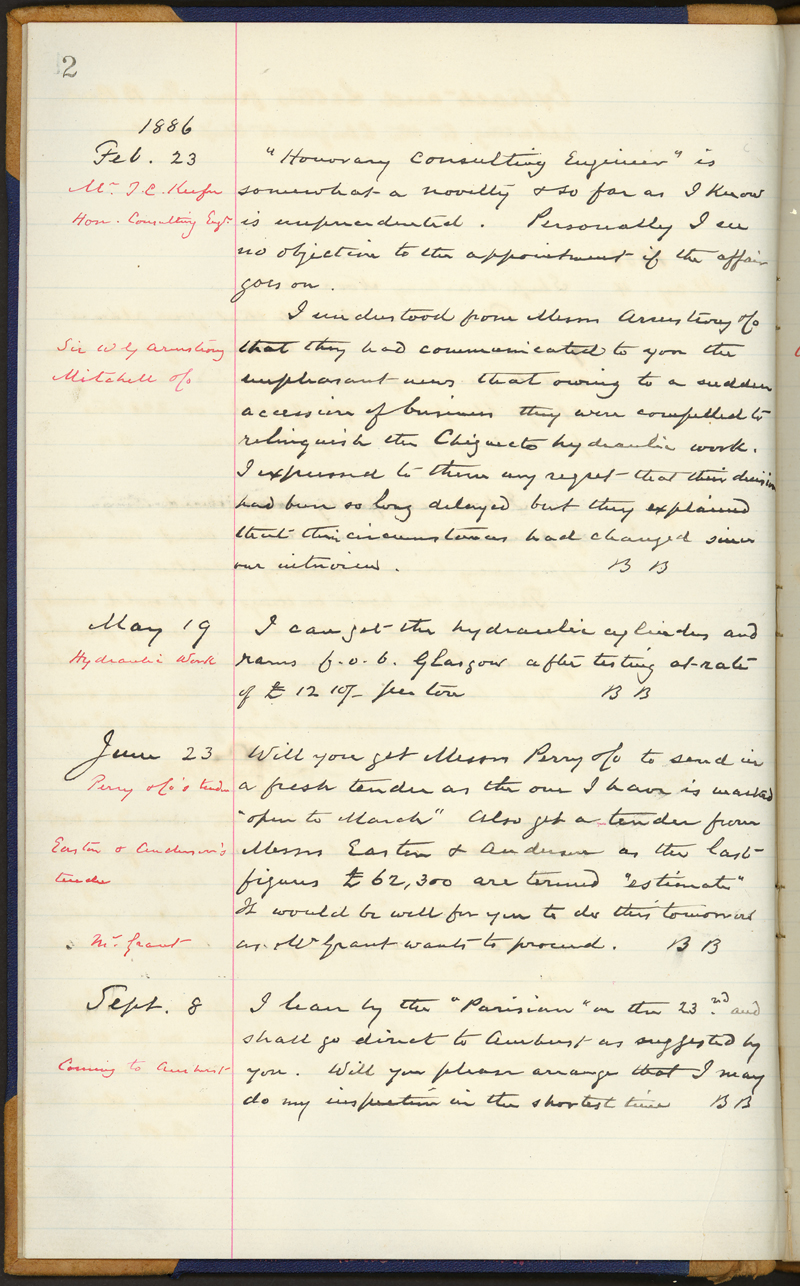 2
1886
Feb. 23
Mr. T. C. Keefer
Hon. Consulting Engr
"Honorary Consulting Engineer" is
somewhat a novelty & so far as I know
is unprecedented. Personally I see
no objection to the appointment if the affair
goes on.
Sir W G Armstrong
Mitchell & Co
I understood from Messrs Armstrong & Co
that they had communicated to you the
unpleasant news that owing to a sudden
accession of business they were compelled to
relinquish the Chignecto hydraulic work.
I expressed to them my regret that their decision
had been so long delayed but they explained
that their circumstances had changed since
our interview. B B
May 19
Hydraulic Work
I can get the hydraulic cylinders and
rams f.o.b. Glasgow after testing at rate
of £ 12 10/- per ton B B
June 23
Perry & Co's tender
Will you get Messrs Perry & Co to send in
a fresh tender as the one I have is marked
"open to March" Also get a tender from
Easton & Anderson's
tender
Messrs Easton & Anderson as the last
figures £ 62,300 are termed "estimate"
It would be well for you to do this tomorrow
Mr. Grant
as Mr Grant wants to proceed. B B
Sept. 8
Coming to Amherst
I leave by the "Parisian" on the 23nd and
shall go direct to Amherst as suggested by
you. Will you please arrange that I may
do my inspection in the shortest time B B